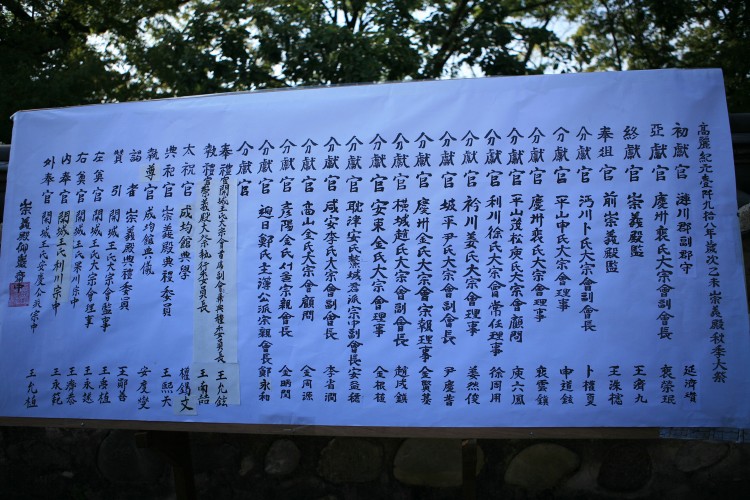 高麗紀元壹千九拾八年歲次乙未崇義殿秋季大祭
初獻官 漣川郡副郡守 延濟瓚
亞獻官 慶州裵氏大宗會副會長 裵榮珉
終獻官 崇義殿監 王濟九
奉俎官 前崇義殿監 王洙
分獻官 沔川卜氏大宗會副會長 卜
分獻官 平山申氏大宗會理事 申道鉉
分獻官 慶州裵氏大宗會理事 裵雲鎮
分獻官 平山茂松庾氏大宗會顧問 庾六鳳
分獻官 利川徐氏大宗會常任理事 徐周用
分獻官 衿川姜氏大宗會理事 姜然俊
分獻官 坡平尹氏大宗會副會長 尹慶
分獻官 慶州金氏大宗會宗報理事 金賢基
分獻官 橫城趙氏大宗會副會長 趙
分獻官 安東金氏大宗會副會長 金
分獻官 耽津安氏 宗中副會長 安
分獻官 咸安李氏大宗會副會長 李省潤
分獻官 高山金氏大宗會顧問 金周源
分獻官 彦陽金氏 宗親會長 金炳閏
分獻官 迎日鄭氏 公派宗親會長 鄭永和
奉禮官 開城王氏大宗會首席副會長兼典禮委員長 王允鉉
執禮官 崇義殿大祭執行委員長 王南喆
太祝官 成均館典學 權錫文
典祀官 崇義殿典禮委員 王熙天
執尊官 成均館典儀 安度燮
謁者 崇義殿典禮委員 王
贊引 開城王氏大宗會監事 王彦植
左奠官 開城王氏大宗會理事 王永
右奠官 開城王氏 宗中 王濟泰
內奉官 開城王氏利川宗中 王永
外奉官 開城王氏安 宗中 王允植
崇義殿